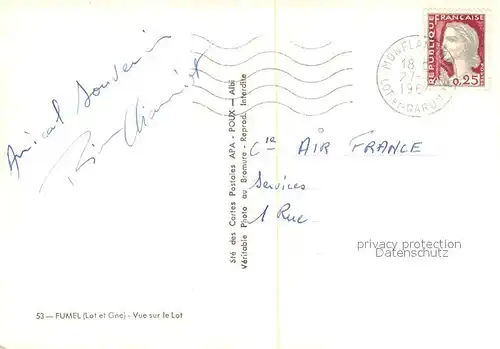 Amical Souvenir
53 — FUMEL (Lot et Gne) - Vue sur le Lot
Sté des Cartes Postales APA - POUX — Albi
Véritable Photo au Bromure - Reprod. Interdite
REPUBLIQUE FRANÇAISE
0,25
MONFLAN
18
27-
196
LOT ET-GAR
Cie AIR FRANCE
Services
1 Rue
privacy protection
Datenschutz